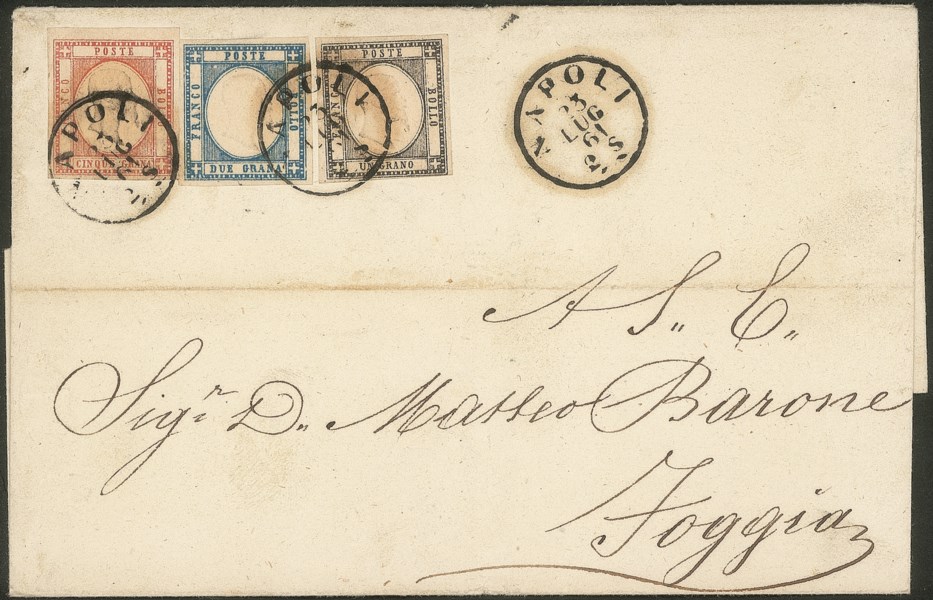 POSTE
FRANCO
BOLLO
CINQUE GRANA
POSTE
FRANCO
BOLLO
DUE GRANA
POSTE
BOLLO
UN GRANO
NAPOLI
NAPOLI
NAPOLI
23
LUG
61
2°S.
A S„ E„
Sigr D„ Matteo Barone
Foggia